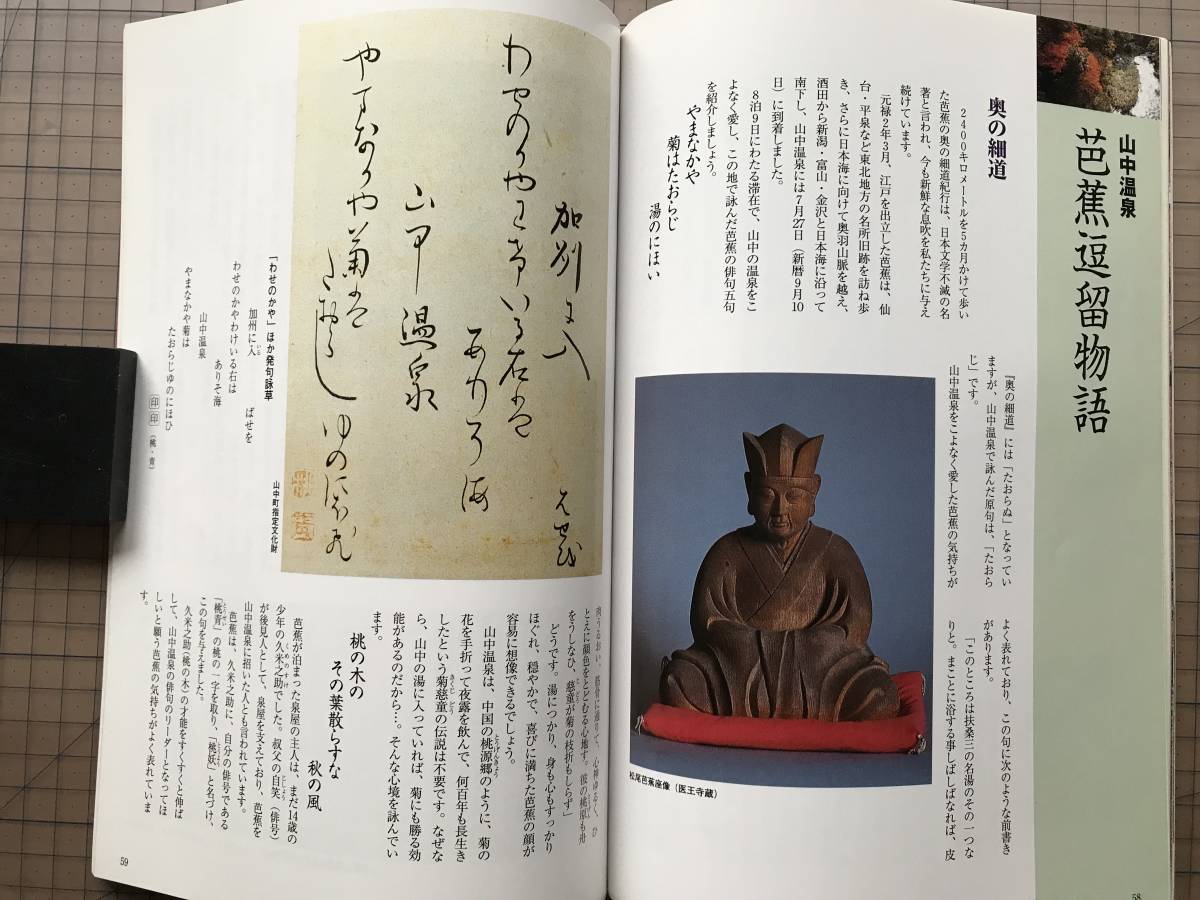 山中温泉
芭蕉逗留物語
奥の細道
2400キロメートルを5カ月かけて歩い
た芭蕉の奥の細道紀行は、日本文学不滅の名
著と言われ、今も新鮮な息吹を私たちに与え
続けています。
元禄2年3月、江戸を出立した芭蕉は、仙
台・平泉など東北地方の名所旧跡を訪ね歩
き、さらに日本海に向けて奥羽山脈を越え、
酒田から新潟・富山・金沢と日本海に沿って
南下し、山中温泉には7月27日（新暦9月10
日）に到着しました。
8泊9日にわたる滞在で、山中の温泉をこ
よなく愛し、この地で詠んだ芭蕉の俳句五句
を紹介しましょう。
やまなかや
菊はたおらじ
湯のにほい
『奥の細道』には「たおらぬ」となってい
ますが、山中温泉で詠んだ原句は、「たおら
じ」です。
山中温泉をこよなく愛した芭蕉の気持ちが
よく表れており、この句に次のような前書き
があります。
「このところは扶桑三の名湯のその一つな
りと。まことに浴する事しばしばなれば、皮
松尾芭蕉座像（医王寺蔵）
58
肉うるおい、筋骨に通りて、心神ゆるく、ひ
とえに顔色をとどむる心地す。彼の桃原も舟
をうしなひ、慈童が菊の枝折もしらず」
どうです。湯につかり、身も心もすっかり
ほぐれ、穏やかで、喜びに満ちた芭蕉の顔が
容易に想像できるでしょう。
山中温泉は、中国の桃源郷のように、菊の
花を手折って夜露を飲んで、何百年も長生き
したという菊慈童の伝説は不要です。なぜな
ら、山中の湯に入っていれば、菊にも勝る効
能があるのだから…。そんな心境を詠んでい
ます。
桃の木の
その葉散らすな
秋の風
芭蕉が泊まった泉屋の主人は、まだ14歳の
少年の久米之助でした。叔父の自笑（俳号）
が後見人として、泉屋を支えており、芭蕉を
山中温泉に招いた人とも言われています。
芭蕉は、久米之助に、自分の俳号である
「桃青」の桃の一字を取り、「桃妖」と名づけ、
この句を与えました。
久米之助（桃の木）の才能をすくすくと伸ば
して、山中温泉の俳句のリーダーとなってほ
しいと願う芭蕉の気持ちがよく表れていま
す。
加州に入
はせを
わせのかやわけいる右は
ありそ海
山中温泉
やまなかや菊は
たおらじゆのにほひ
「わせのかや」ほか発句詠草
加州に入
ばせを
わせのかやわけいる右は
ありそ海
山中温泉
やまなかや菊は
たおらじゆのにほひ
印 印（桃・青）
山中町指定文化財
59